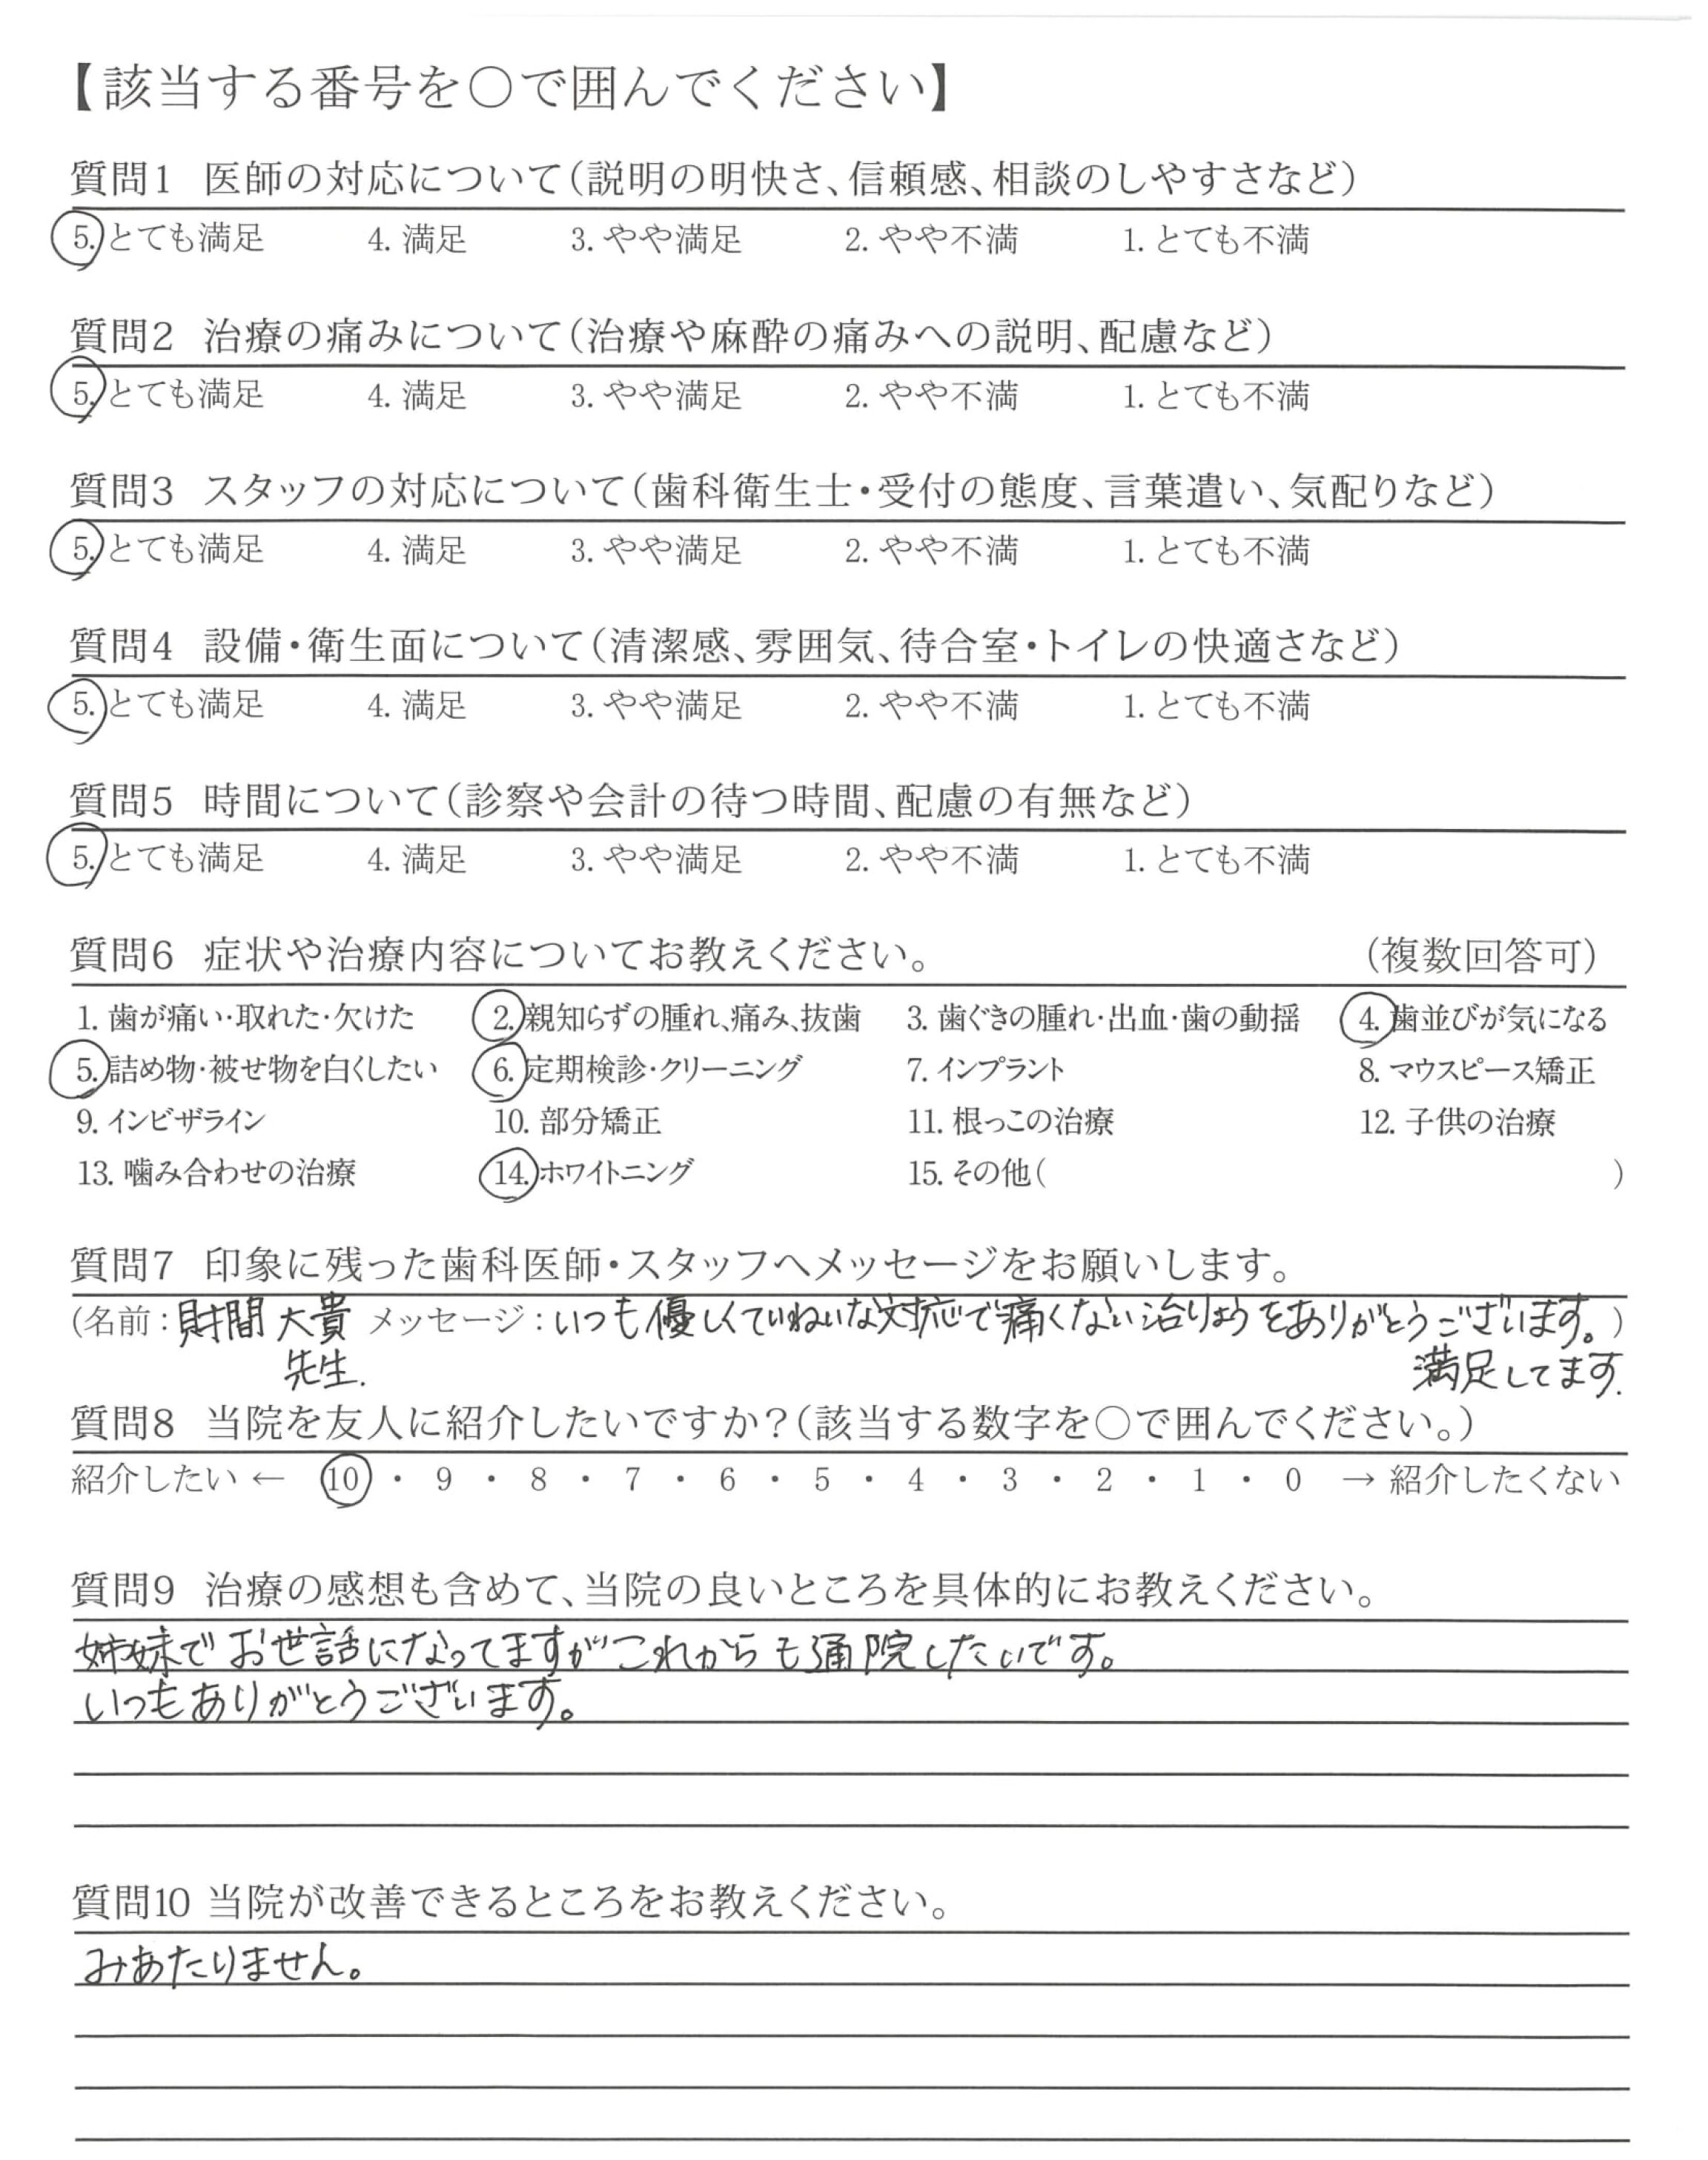 【該当する番号を○で囲んでください】
質問1 医師の対応について(説明の明快さ、信頼感、相談のしやすさなど)
5. とても満足 4. 満足 3. やや満足 2. やや不満 1. とても不満
質問2 治療の痛みについて(治療や麻酔の痛みへの説明、配慮など)
5. とても満足 4. 満足 3. やや満足 2. やや不満 1. とても不満
質問3 スタッフの対応について(歯科衛生士・受付の態度、言葉遣い、気配りなど)
5. とても満足 4. 満足 3. やや満足 2. やや不満 1. とても不満
質問4 設備・衛生面について(清潔感、雰囲気、待合室・トイレの快適さなど)
5. とても満足 4. 満足 3. やや満足 2. やや不満 1. とても不満
質問5 時間について(診察や会計の待つ時間、配慮の有無など)
5. とても満足 4. 満足 3. やや満足 2. やや不満 1. とても不満
質問6 症状や治療内容についてお教えください。 (複数回答可)
1. 歯が痛い・取れた・欠けた 2. 親知らずの腫れ、痛み、抜歯 3. 歯ぐきの腫れ・出血・歯の動揺 4. 歯並びが気になる
5. 詰め物・被せ物を白くしたい 6. 定期検診・クリーニング 7. インプラント 8. マウスピース矯正
9. インビザライン 10. 部分矯正 11. 根っこの治療 12. 子供の治療
13. 噛み合わせの治療 14. ホワイトニング 15. その他( )
質問7 印象に残った歯科医師・スタッフへメッセージをお願いします。
(名前:財間 大貴 メッセージ:いつも優しくていねいな対応で痛くない治りょうをありがとうございます。)
先生. 満足してます.
質問8 当院を友人に紹介したいですか?(該当する数字を○で囲んでください。)
紹介したい ← 10 ・ 9 ・ 8 ・ 7 ・ 6 ・ 5 ・ 4 ・ 3 ・ 2 ・ 1 ・ 0 → 紹介したくない
質問9 治療の感想も含めて、当院の良いところを具体的にお教えください。
姉妹でお世話になってますがこれからも通院したいです。
いつもありがとうございます。
質問10 当院が改善できるところをお教えください。
みあたりません。